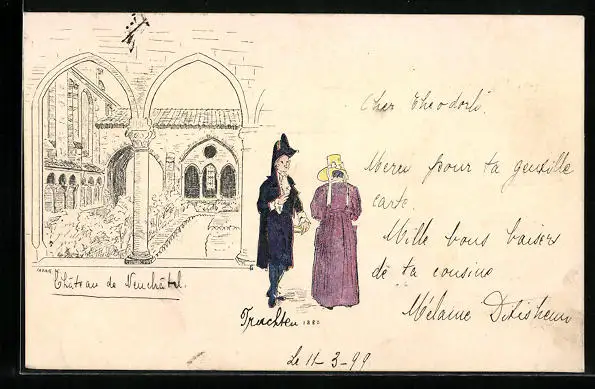 Cher Theodore.
Merci pour ta gentille
carte.
Mille bons baisers
de ta cousine
Mélanie Ditisheim
Château de Neuchâtel.
Trachten 1880
Le 11-3-99